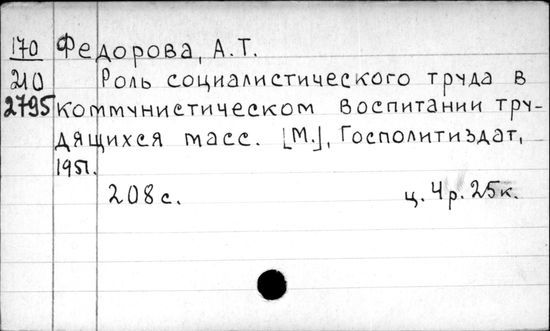 170 Федорова, А.Т.
210 Роль социалистического труда в
2795 коммунистическом воспитании тру-
дящихся масс. [М.], Госполитиздат,
1951.
208 с. ц. 4 р. 25 к.